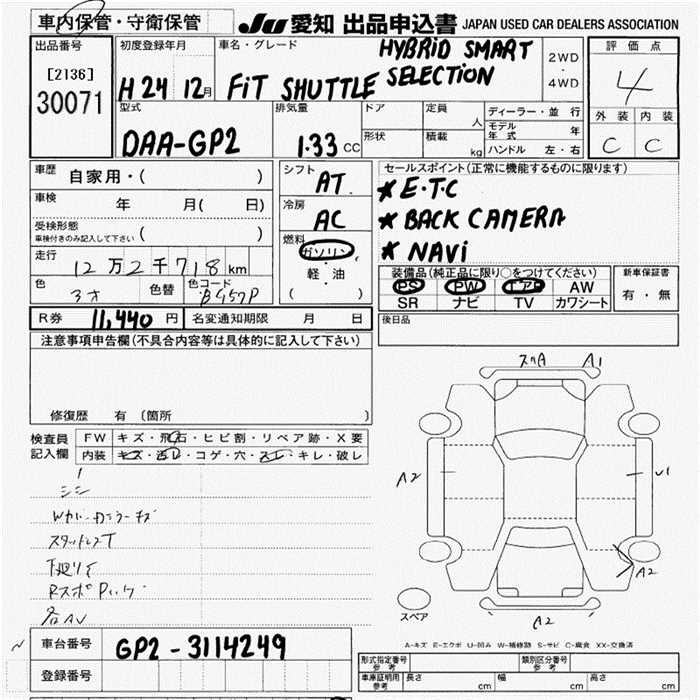 車内保管・守衛保管
JU 愛知 出品申込書 JAPAN USED CAR DEALERS ASSOCIATION
出品番号
[2136]
30071
初度登録年月
H24 12月
車名・グレード
FiT SHUTTLE
HYBRiD SMART
SELECTiON
2WD
・
4WD
評価点
4
外装 内装
C C
型式
DAA-GP2
排気量
1.33 CC
ドア
形状
定員
人
積載
kg
ディーラー・並行
モデル年式 年
ハンドル 左・右
車歴
自家用・( )
車検
年 月( 日)
受検形態
車検付きのみ記入して下さい ( )
走行
12万2千718km
色
色替
色コード
B957P
シフト
AT
冷房
AC
燃料
ガソリン
軽・油
( )
セールスポイント(正常に機能するものに限ります)
* E・T・C
* BACK CAMERA
* NAVi
装備品(純正品に限り○をつけてください)
PS PW エアB AW
SR ナビ TV カワシート
新車保証書
有・無
R券 11,440 円
名変通知期限 月 日
後日品
注意事項申告欄(不具合内容等は具体的に記入して下さい)
修復歴 有 (箇所 )
検査員
記入欄
FW キズ・飛石・ヒビ割・リペア跡・X要
内装 キズ・汚レ・コゲ・穴・スレ・キレ・破レ
スリA A1
A2
U1
A2
A2
スペア
スタッドレスT
A-キズ E-エクボ U-凹み W-補修跡 S-サビ C-腐食 XX-交換済
車台番号
GP2-3114249
登録番号
型式指定番号
参考
類別区分番号
参考
車庫証明用
参考
長さ cm
幅 cm
高さ cm